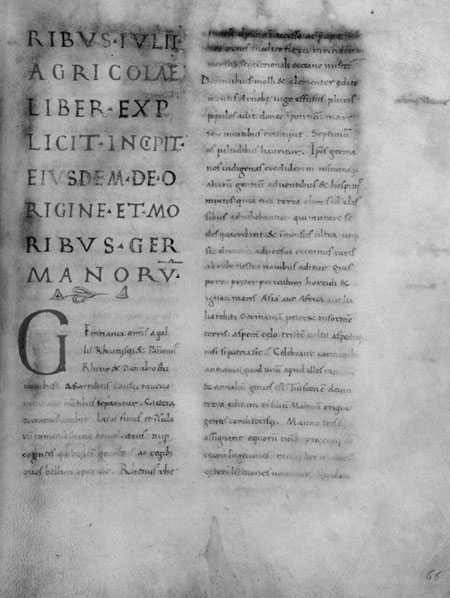 RIBVS·IVLII
AGRICOLAE
LIBER·EXP
LICIT·INCIPIT·
EIVSDEM·DE·O
RIGINE·ET·MO
RIBVS·GER
MANORV̄·
Germania omīs a gal
lis Rhaetisq; & Panoniis
Rheno & Danubio flu
minibus a Sarmatis Dacisq; mutuo
metu aut montibus separatur. Caetera
oceanus ambit latos sinus et Insula
rū inmensa spatia complectens nup
cognitis gentibus ac regibus
quos bellum aperuit. Rhenus rhe
vertice
modico flexu in occidentem
versus septentrionali oceano miscetur
Danubius molli & clementer edito
montis Arnobae iugo effusus pluris
populos adit donec in ponticū mare
sex meatibus erumpat. Septimum
os paludibus hauritur. Ipsos germa
nos indigenas crediderim minimeq;
aliarū gentiū adventibus & hospitiis
mixtos quia nec terra olim sed clas
sibus advehebantur qui mutare se
des quaerebant & immensus ultra utq;
sic dixerim adversus oceanus raris
ab orbe nostro navibus aditur. Quis
porro preter periculum horridi &
ignoti maris Asia aut Africa aut Ita
lia relicta Germaniā peteret informē
terris asperā celo tristē cultu aspectuq;
nisi si patria sit. Celebrant carminibus
antiquis quod unū apud illos memoriae
& annaliū genus est Tuisconē deum
terra editum et filiū Mannū originē
gentis conditorisq;. Manno tris
assignant e quorū
oceano Ingaevones medii
ceteri Istaevones vocentur. Quidam
66